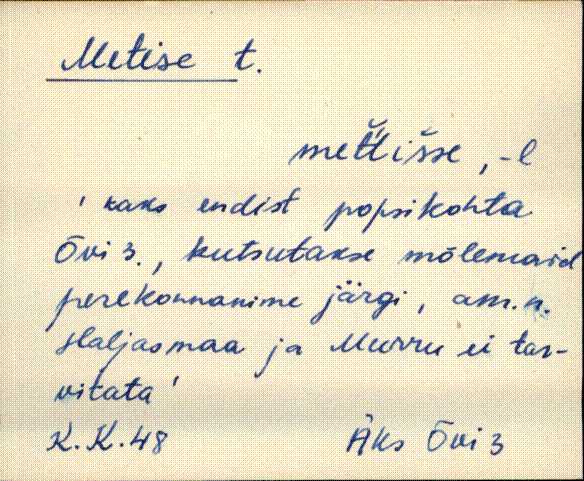 Metise t.
met̆t̆išše, -l
' kaks endist popsikohta
Õvi 3., kutsutakse mõlemaid
perekonnanime järgi, am.n.
Haljasmaa ja Murru ei tar-
vitata'
K.K.48 Äks Õvi 3